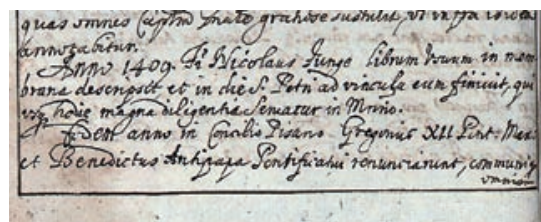 quas omnes Capttm Prate gratiose sustulit, vt infra
annotabitur.
Anno 1409. Fr Nicolaus Junge librum Vsuum in mem
brana descripsit et in die S. Petri ad vincula eum finiuit, qui
vsq hodie magna diligentia seruatur in Mrio.
Eodem anno in Concilio Pisano Gregorius XII Pont. Max.
et Benedictus Antipapa Pontificatui renunciarunt, communi
omnium